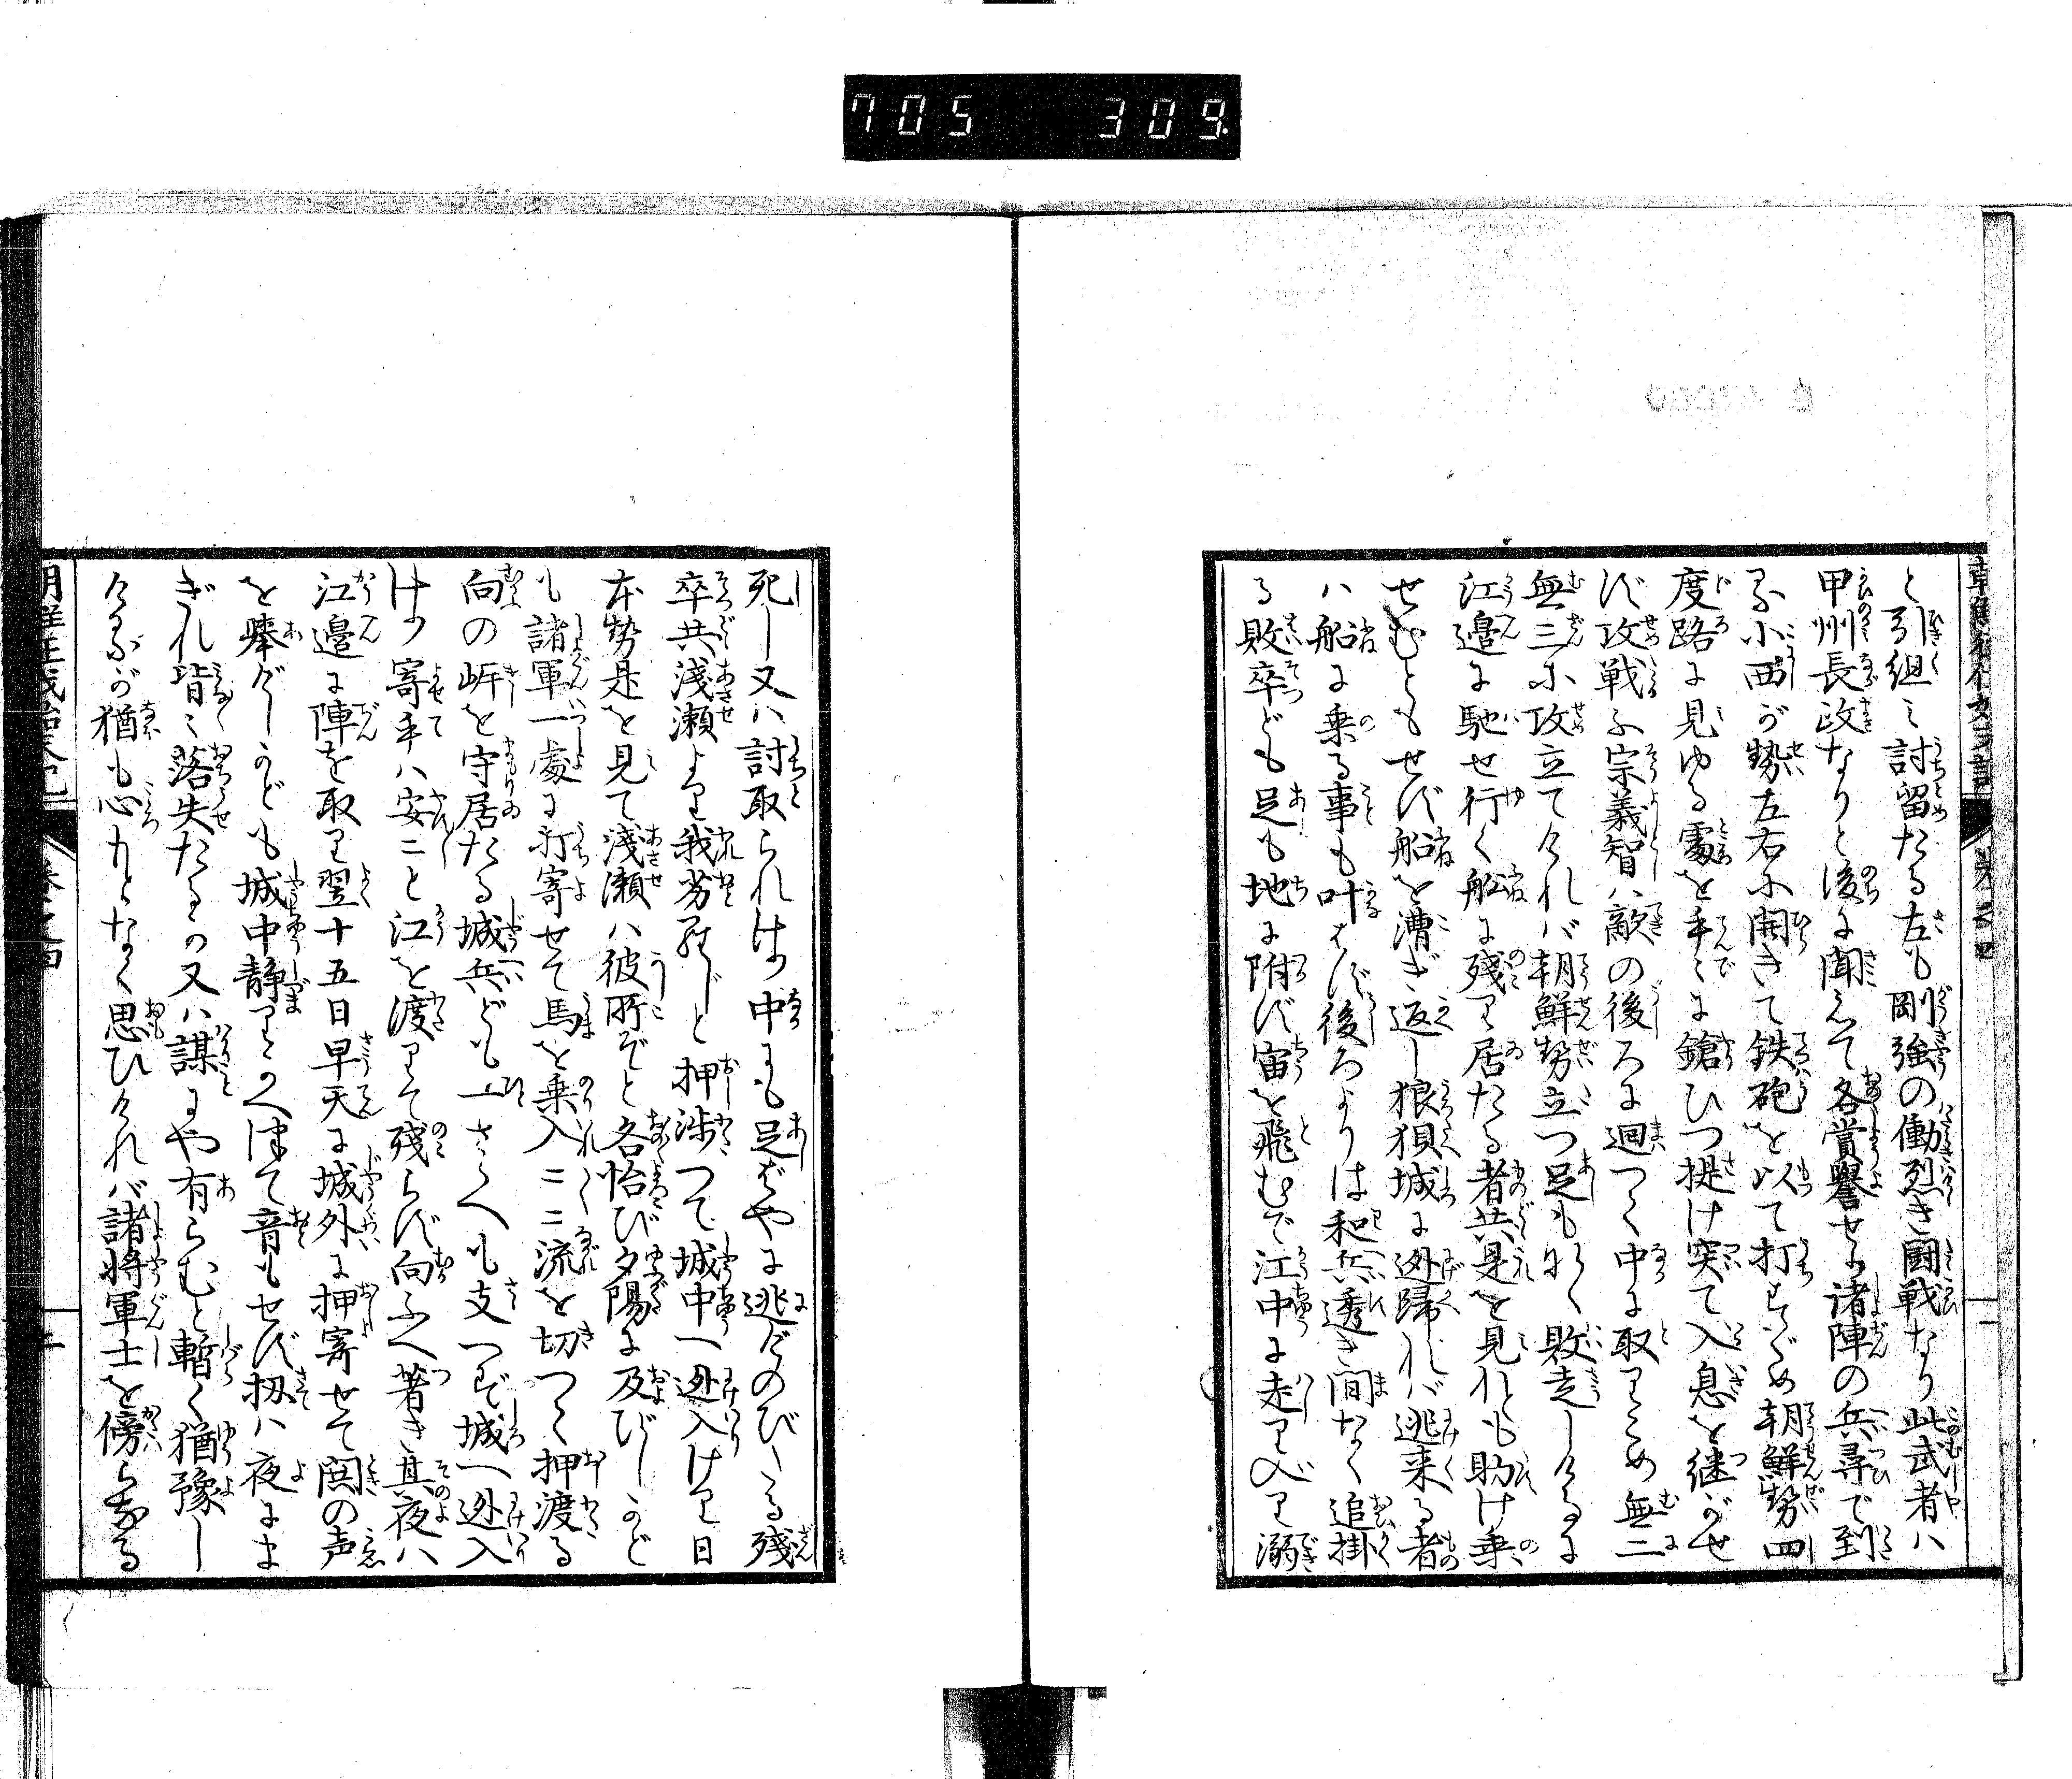 705 309
と引組ミ討留たる左も剛強の働烈き闘戦なり此武者ハ
甲州長政なりと後に聞えて各賞誉せり諸陣の兵尋で到
る小西が勢左右に開きて鉄砲を以て打すくめ朝鮮勢四
度路に見ゆる処を手ミに鎗ひつ提け突て入息を継がせ
ず攻戦ふ宗義智ハ敵の後ろに廻つく中に取りこめ無二
無三に攻立てけれバ朝鮮勢立つ足もなく敗走しけるに
江邉に馳せ行く船に残り居たる者共是を見れとも助け乗
せむともせず船を漕ぎ返し狼狽城に迯歸れバ逃来る者
ハ船に乗る事も叶はず後ろよりは和兵透き間なく追掛
る敗卒ども足も地に附ず宙を飛むで江中に走り入り溺
死し又ハ討取られける中にも足ばやに逃だのびたる残
卒共浅瀬より我劣らじと押渉つて城中へ迯入けり日
本勢是を見て浅瀬ハ彼所ぞと各怡び夕陽に及びしかど
も諸軍一處に打寄せて馬を乗入ニニ流を切つく押渡る
向の岍を守居たる城兵ども一さゝへも支へず城へ迯入
ける寄手ハ安ニと江を渡りて残らず向ふへ著き其夜ハ
江邉に陣を取り翌十五日早天に城外に押寄せて鬨の声
を挙げしかども城中静りかへつて音もせず扨ハ夜にま
ぎれ皆ミ落失たるの又ハ謀にや有らむと暫く猶豫し
けるが猶も心もとなく思ひけれバ諸将軍士を傍らなる